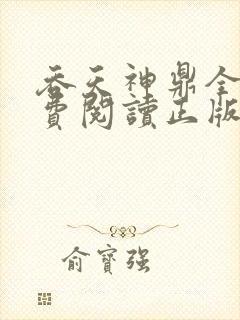 吞天神鼎全
費閱讀正版
俞寶强